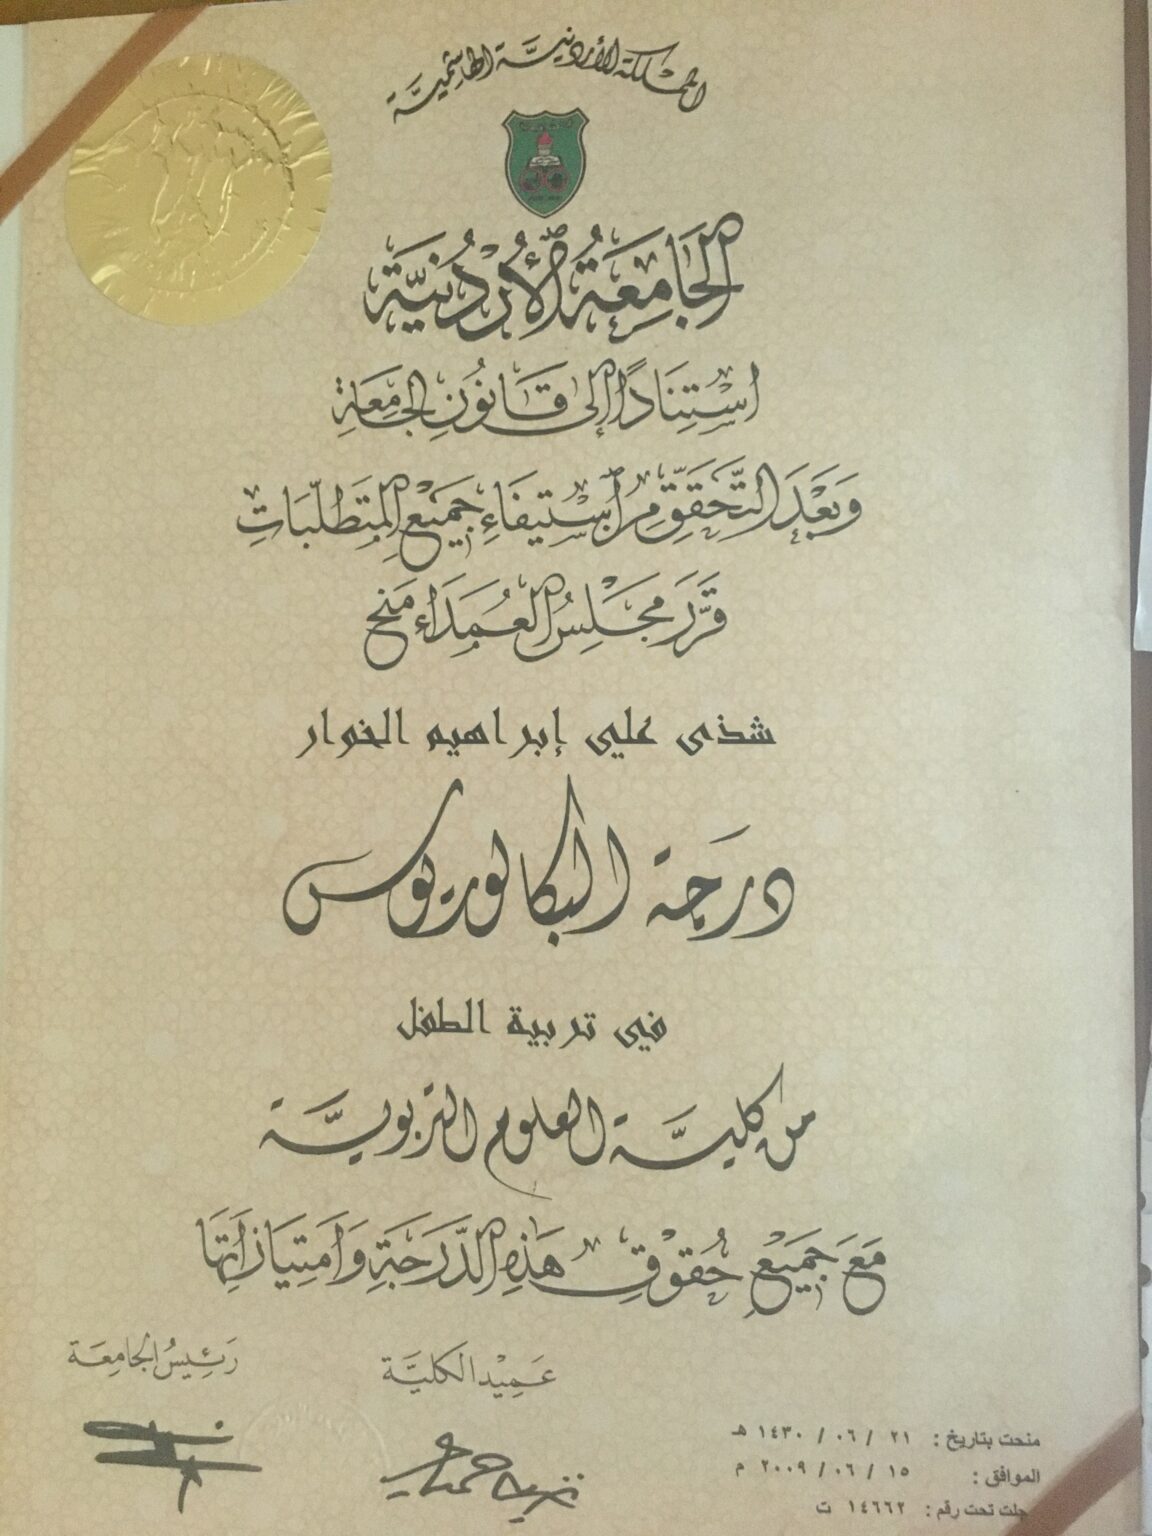 المملكة الأردنية الهاشمية
الجَامِعَةُ الأُرْدُنِيَّة
اسْتِنَادًا إِلى قَانُونِ الجَامِعَةِ
وَبَعْدَ التَّحَقُّقِ مِن اسْتِيفَاءِ جَمِيْعِ المُتَطَلَّبَاتِ
قَرَّرَ مَجْلِسُ العُمَدَاءِ مَنحَ
شذى علي إبراهيم الخوار
درجة البكالوريوس
في تربية الطفل
من كلية العلوم التربويّة
مَعَ جَمِيْعِ حُقُوْقِ هَذِهِ الدَّرَجَةِ وَامْتِيَازَاتِهَا
عَمِيْد الكليَّة
رَئِيسُ الجَامِعَة
منحت بتاريخ : ٢١ / ٠٦ / ١٤٣٠ هـ
الموافق : ١٥ / ٠٦ / ٢٠٠٩ م
جلت تحت رقم : ١٤٦٦٢ ت